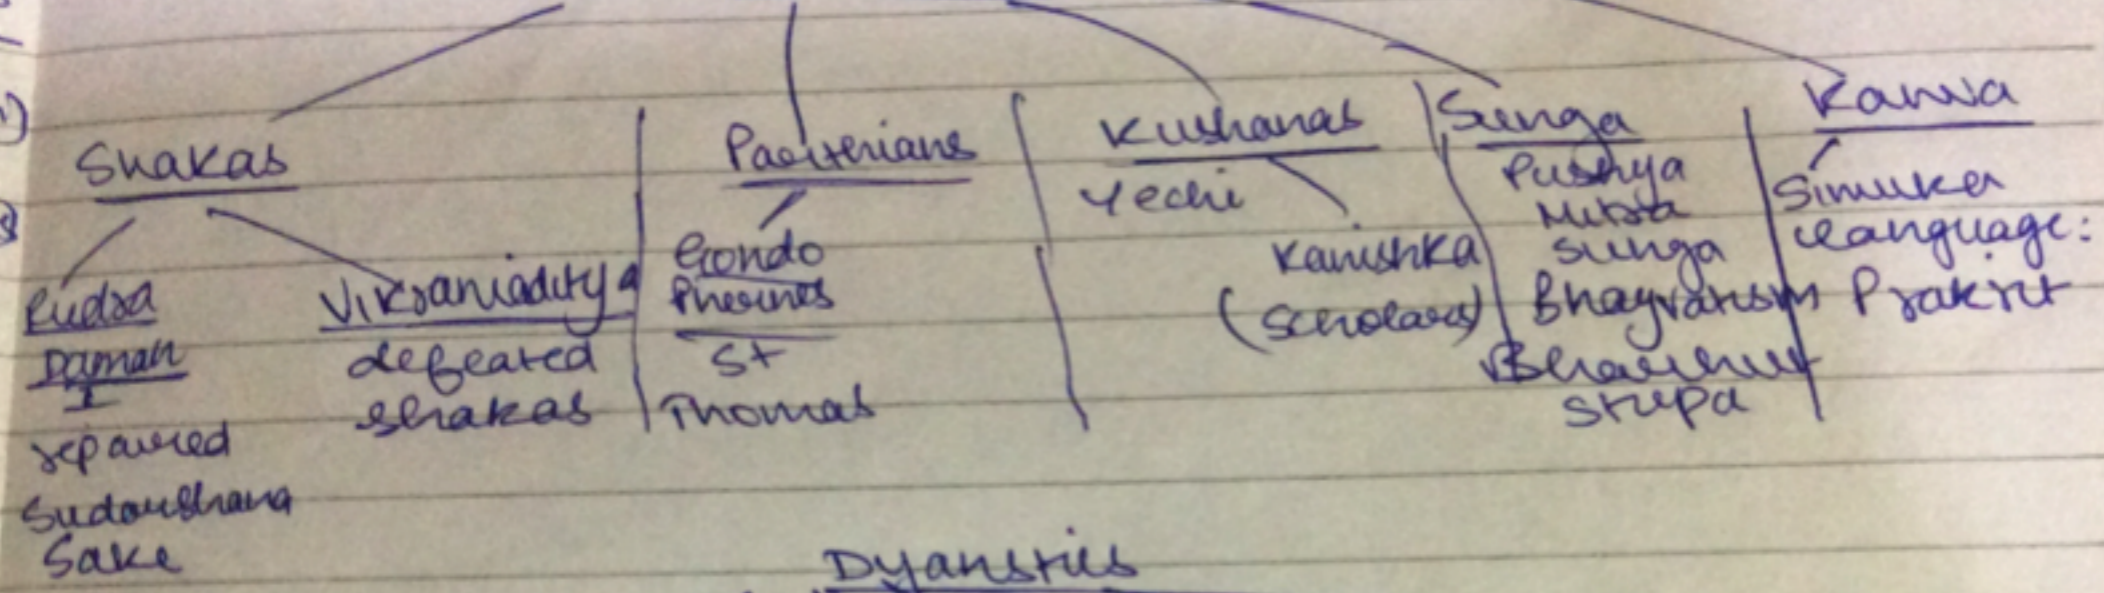 Shakas
Rudra
Daman
I
repaired
Sudarshana
Sake
Vikramaditya
defeated
shakas
Paritherians
Gondo
Phernes
St
Thomas
Kushanas
Yechi
Kanishka
(Scholars)
Sunga
Pushya
Mitra
Sunga
Bharhut
Stupa
Kanva
Simuka
language:
Prakrit
Dyansties